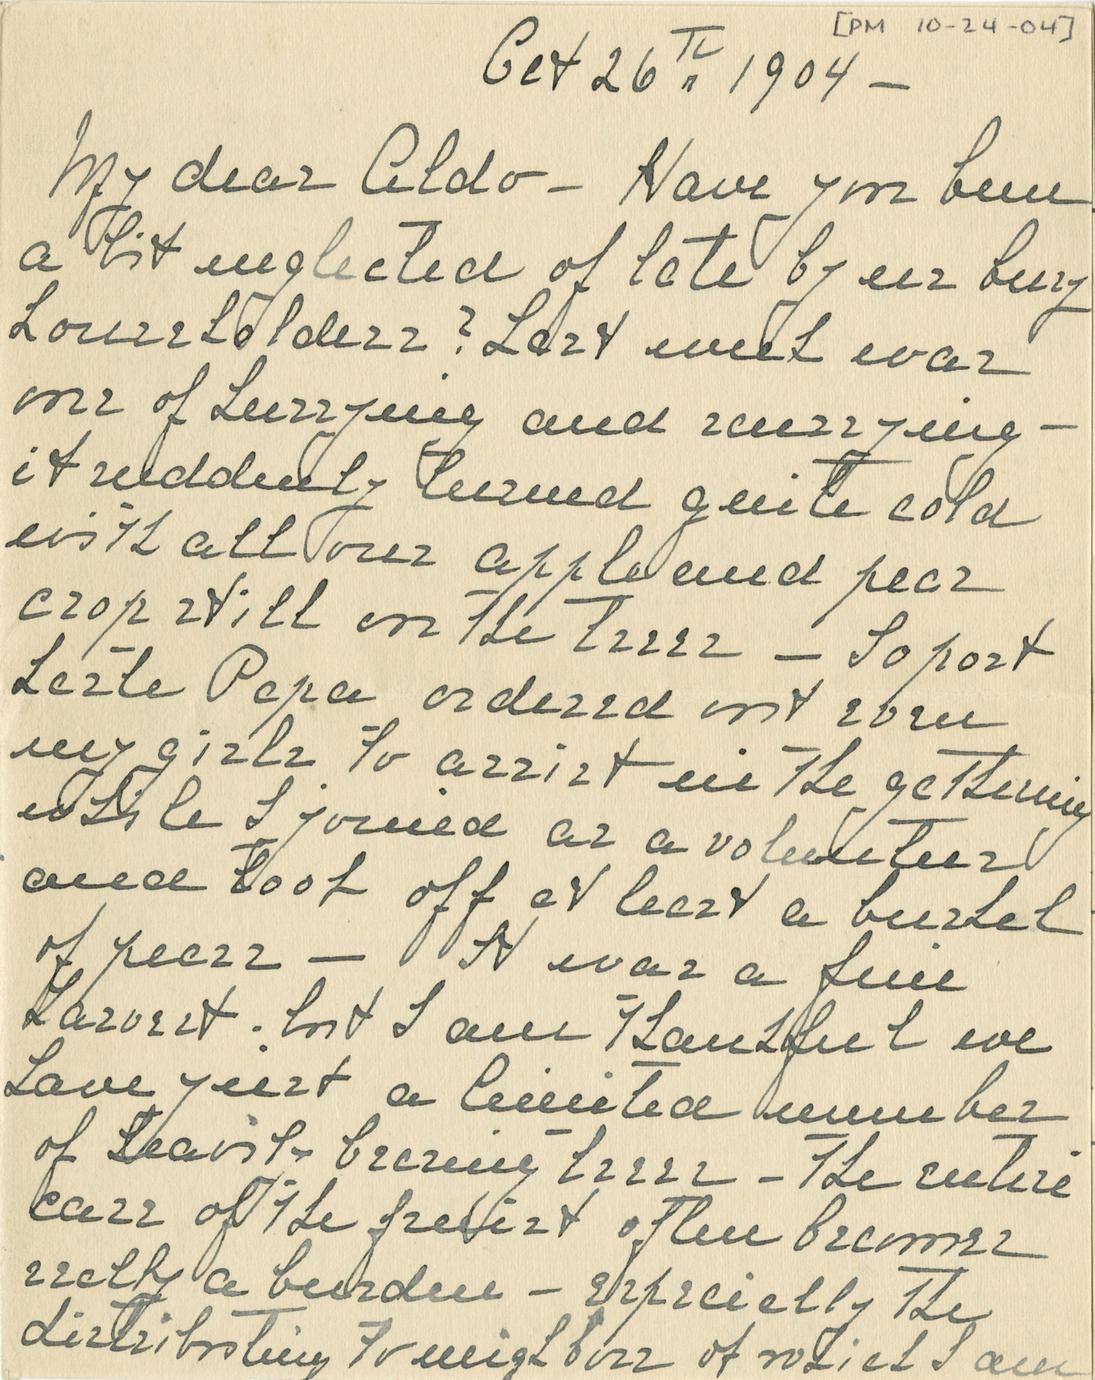 [PM 10-24-04]
Oct 26th 1904 –
My dear Aldo – Have you been
a bit neglected of late by us busy
householders? Last week was
one of hurrying and scurrying –
it suddenly turned quite cold
with all our apple and pear
crop still on the trees – So post
haste Papa ordered out even
my girls to assist in the gathering
while I joined as a volunteer
and took off at least a bushel
of pears – It was a fine
harvest. but I am thankful we
have just a limited number
of heavily bearing trees – the entire
care of the fruit often becomes
really a burden – especially the
distributing to neighbors of which I am